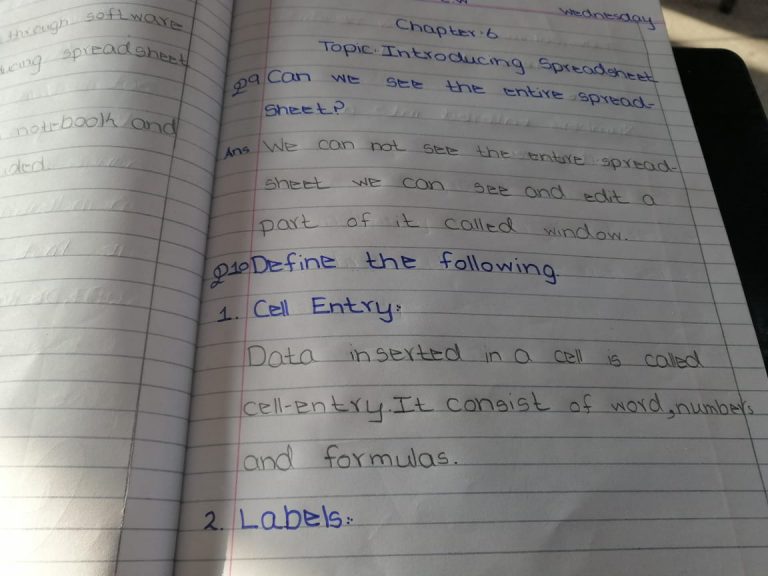 through software
ucing spreadsheet
notebook and
ded.
Wednesday
Chapter.6
Topic.Introducing Spreadsheet
Q9 Can we see the entire spread-
sheet?
Ans We can not see the entire spread-
sheet we can see and edit a
part of it called window.
Q10 Define the following
1. Cell Entry:
Data inserted in a cell is called
cell-entry.It consist of word,numbers
and formulas.
2. Labels: